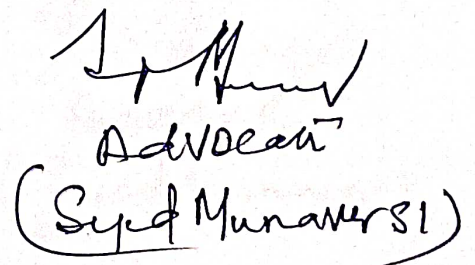 Advocate
(Syed Munaver SI)